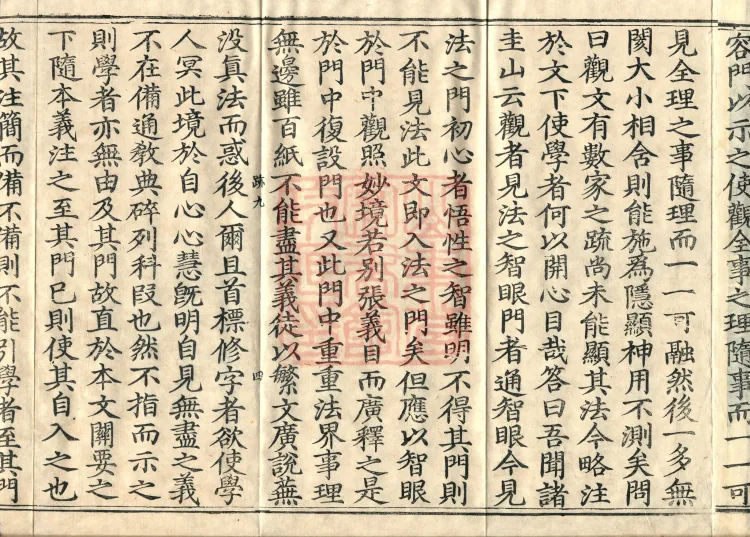 容門以示之使觀全事之理隨事而一一可
見全理之事隨理而一一可融然後一多無
閡大小相舍則能施為隱顯神用不測矣問
曰觀文有數家之疏尚未能顯其法今略注
於文下使學者何以開心目哉答曰吾聞諸
圭山云觀者見法之智眼門者通智眼令見
法之門初心者悟性之智雖明不得其門則
不能見法此文即入法之門矣但應以智眼
於門中觀照妙境若別張義目而廣釋之是
於門中復設門也又此門中重重法界事理
無邊雖百紙不能盡其義徒以繁文廣說蕪
跡九 四
没真法而惑後人爾且首標修字者欲使學
人冥此境於自心心慧既明自見無盡之義
不在備通教典碎列科段也然不指而示之
則學者亦無由及其門故直於本文關要之
下隨本義注之至其門已則使其自入之也
故其注簡而備不備則不能引學者至其門